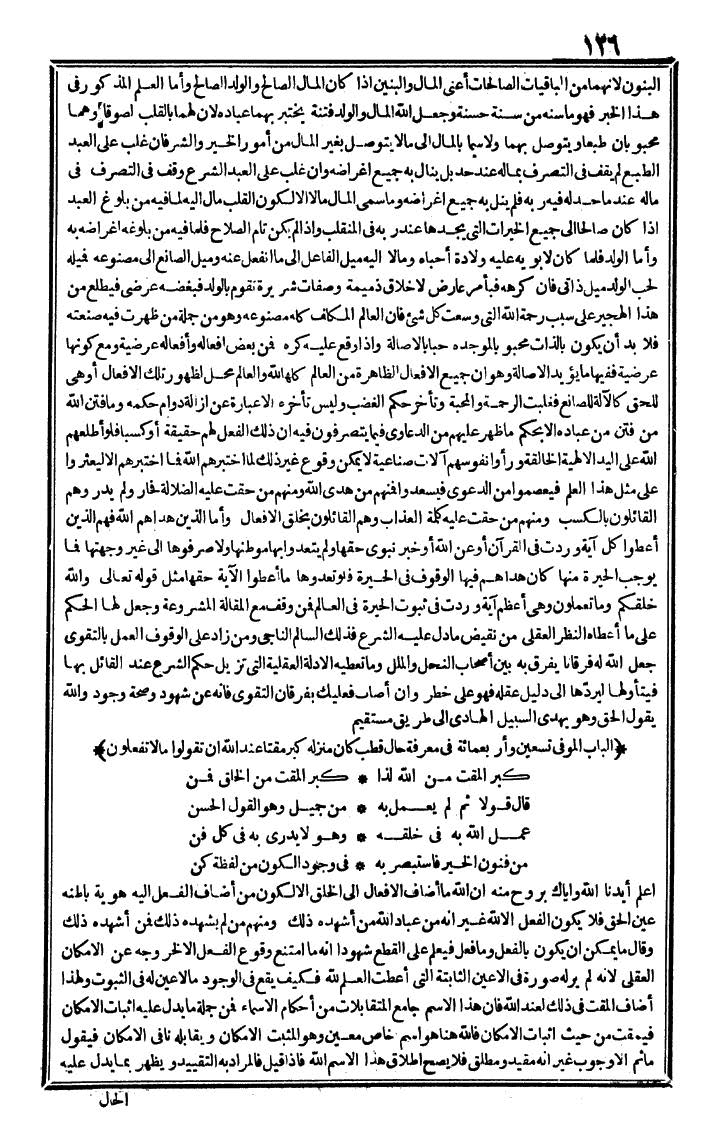 ١٣٦
البنون لانهما من الباقيات الصالحات أعني المال والبنين اذا كان المال الصالح والولد الصالح وأما العلم المذكور في
هذا الخبر فهو ما سنه من سنة حسنة وجعل الله المال والولد فتنة يختبر بهما عباده لان لهما بالقلب لصوقا وهما
محبوبان طبعا و يتوصل بهما ولاسيما بالمال الى مالا يتوصل بغير المال من أمور الخير والشر فان غلب على العبد
الطبع لم يقف في التصرف بماله عند حد بل ينال به جميع اغراضه وان غلب على العبد الشرع وقف في التصرف في
ماله عند ما حد له فيه ربه فلم ينل به جميع اغراضه وما سمى المال مالا الا لكون القلب مال اليه لما فيه من بلوغ العبد
اذا كان صالحا الى جميع الخيرات التي يجدها عند ربه في المنقلب واذا لم يكن تام الصلاح فلما فيه من بلوغه اغراضه به
وأما الولد فلما كان لابو يه عليه ولادة أحباه ومالا اليه ميل الفاعل الى ما انفعل عنه وميل الصانع الى مصنوعه فيله
لحب الولد ميل ذاتي فان كرهه فبأمر عارض لاخلاق ذميمة وصفات شريرة تقوم بالولد فبغضه عرضي فيطلع من
هذا الهجير على سبب رحمة الله التي وسعت كل شئ فان العالم المكلف كله مصنوعه وهو من جملة من ظهرت فيه صنعته
فلا بد أن يكون بالذات محبو بالموجده حبا بالاصالة واذا وقع عليه كره فمن بعض افعاله وأفعاله عرضية ومع كونها
عرضية ففيها ما يؤيد الاصالة وهو ان جميع الافعال الظاهرة من العالم كلها لله والعالم محل لظهور تلك الافعال أو هى
للحق كالآلة للصانع فغلبت الرحمة والمحبة وتأخر حكم الغضب وليس تأخره الا عبارة عن ازالة دوام حكمه وما فتن الله
من فتن من عباده الا بحكم ما ظهر عليهم من الدعاوى فيما يتصرفون فيه ان ذلك الفعل لهم حقيقة أو كسبا فلو أطلعهم
الله على اليد الالهية الخالقة ورأوا نفوسهم آلات صناعية لا يمكن وقوع غير ذلك لما اختبرهم الله فما اختبرهم الا ليعثروا
على مثل هذا العلم فيعصموا من الدعوى فيسعدوا فمنهم من هدى الله ومنهم من حقت عليه الضلالة فحار ولم يدر وهم
القائلون بالكسب ومنهم من حقت عليه كلة العذاب وهم القائلون بخلق الافعال وأما الذين هداهم الله فهم الذين
أعطوا كل آية وردت في القرآن أو عن الله أو خبر نبوى حقها ولم يتعدوا بها موطنها ولا صرفوها الى غير وجهتها فما
يوجب الحيرة منها كان هداهم فيها الوقوف في الحيرة فلو تعدوها ما أعطوا الآية حقها مثل قوله تعالى والله
خلقكم وما تعملون وهى أعظم آية وردت في ثبوت الحيرة في العالم فمن وقف مع المقالة المشروعة وجعل لها الحكم
على ما أعطاه النظر العقلى من نقيض ما دل عليه الشرع فذلك السالم الناجى ومن زاد على الوقوف العمل بالتقوى
جعل الله له فرقانا يفرق به بين أصحاب النحل والملل وما تعطيه الادلة العقلية التي تزيل حكم الشرع عند القائل بها
فيتأولها ليردها الى دليل عقله فهو على خطر وان أصاب فعليك بفرقان التقوى فانه عن شهود وصحة وجود والله
يقول الحق وهو يهدى السبيل الهادى الى طريق مستقيم
﴿الباب الموفى تسعين وأربعمائة في معرفة حال قطب كان منزله كبر مقتا عند الله ان تقولوا مالا تفعلون﴾
كبر المقت من الله لذا * كبر المقت من الخلق فمن
قال قولا ثم لم يعمل به * من جميل وهو القول الحسن
عمل الله به في خلقه * وهو لا يدرى به في كل فن
من فنون الخير فاستبصر به * في وجود الكون من لفظة كن
اعلم أيدنا الله واياك بروح منه ان الله ما أضاف الافعال الى الخلق الا لكون من أضاف الفعل اليه هوية باطنه
عين الحق فلا يكون الفعل الا لله غير انه من عباد الله من أشهده ذلك ومنهم من لم يشهده ذلك فمن أشهده ذلك
وقال ما يمكن ان يكون بالفعل وما فعل فيعلم على القطع شهودا انه ما امتنع وقوع الفعل الا لخروجه عن الامكان
العقلى لانه لم ير له صورة في الاعين الثابتة التي أعطت العلم لله فكيف يقع في الوجود مالا عين له في الثبوت ولهذا
أضاف المقت في ذلك لعند الله فان هذا الاسم جامع المتقابلات من أحكام الاسماء فمن جملة ما يدل عليه اثبات الامكان
فيمقت من حيث اثبات الامكان فالله هنا هو اسم خاص معين وهو المثبت الامكان ويقابله نافى الامكان فيقول
ما ثم الا وجوب غير انه مقيد ومطلق فلا يصح اطلاق هذا الاسم الله فاذا قيل فالمراد به التقييد ويظهر بما يدل عليه
الحال